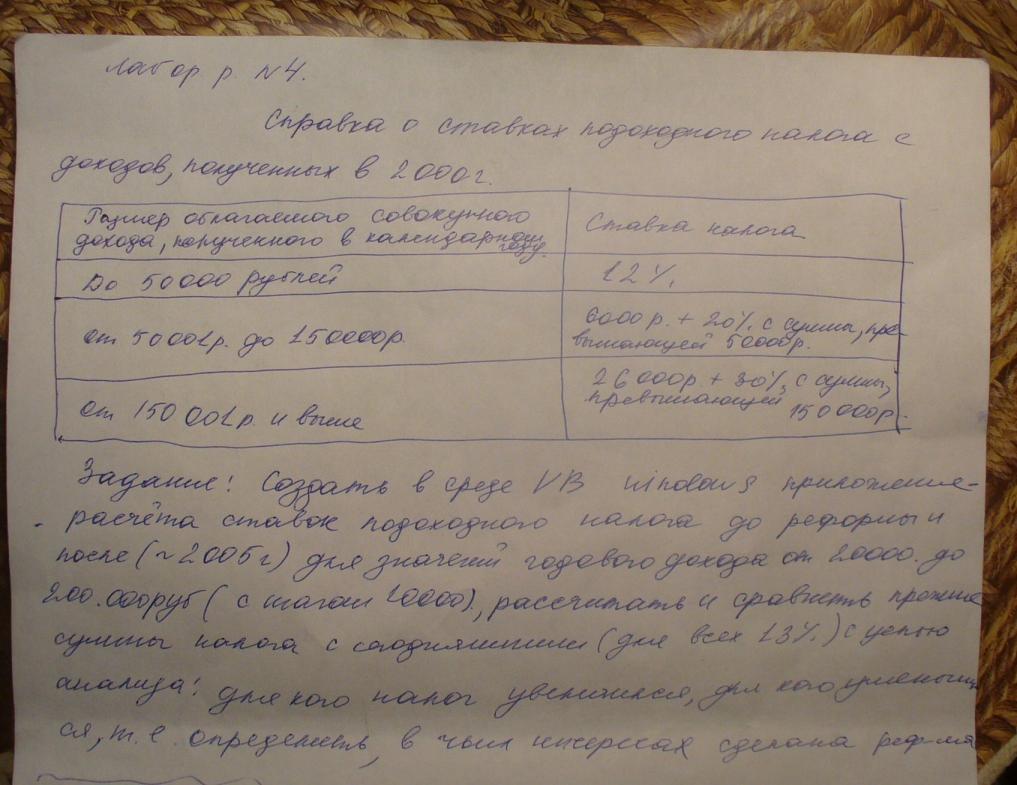 лабор р. №4.
Справка о ставках подоходного налога с
доходов, полученных в 2000г.
Размер облагаемого совокупного
дохода, полученного в календарном
году.
Ставка налога
До 50000 рублей
12%.
от 50001р. до 150000р.
6000р. + 20% с суммы, пре-
вышающей 50000р.
от 150001р. и выше
26000р. + 30% с суммы,
превышающей
150000р.
Задание: Создать в среде VB windows приложение-
расчёта ставок подоходного налога до реформы и
после (~2005г) для значений годового дохода от 20000. до
200.000руб (с шагом 10000), рассчитать и сравнить прежние
суммы налога с (для всех 13%) с целью
анализа: для кого налог увеличился, для кого уменьшил
ся, т.е. определить, в чьих интересах сделана реформа